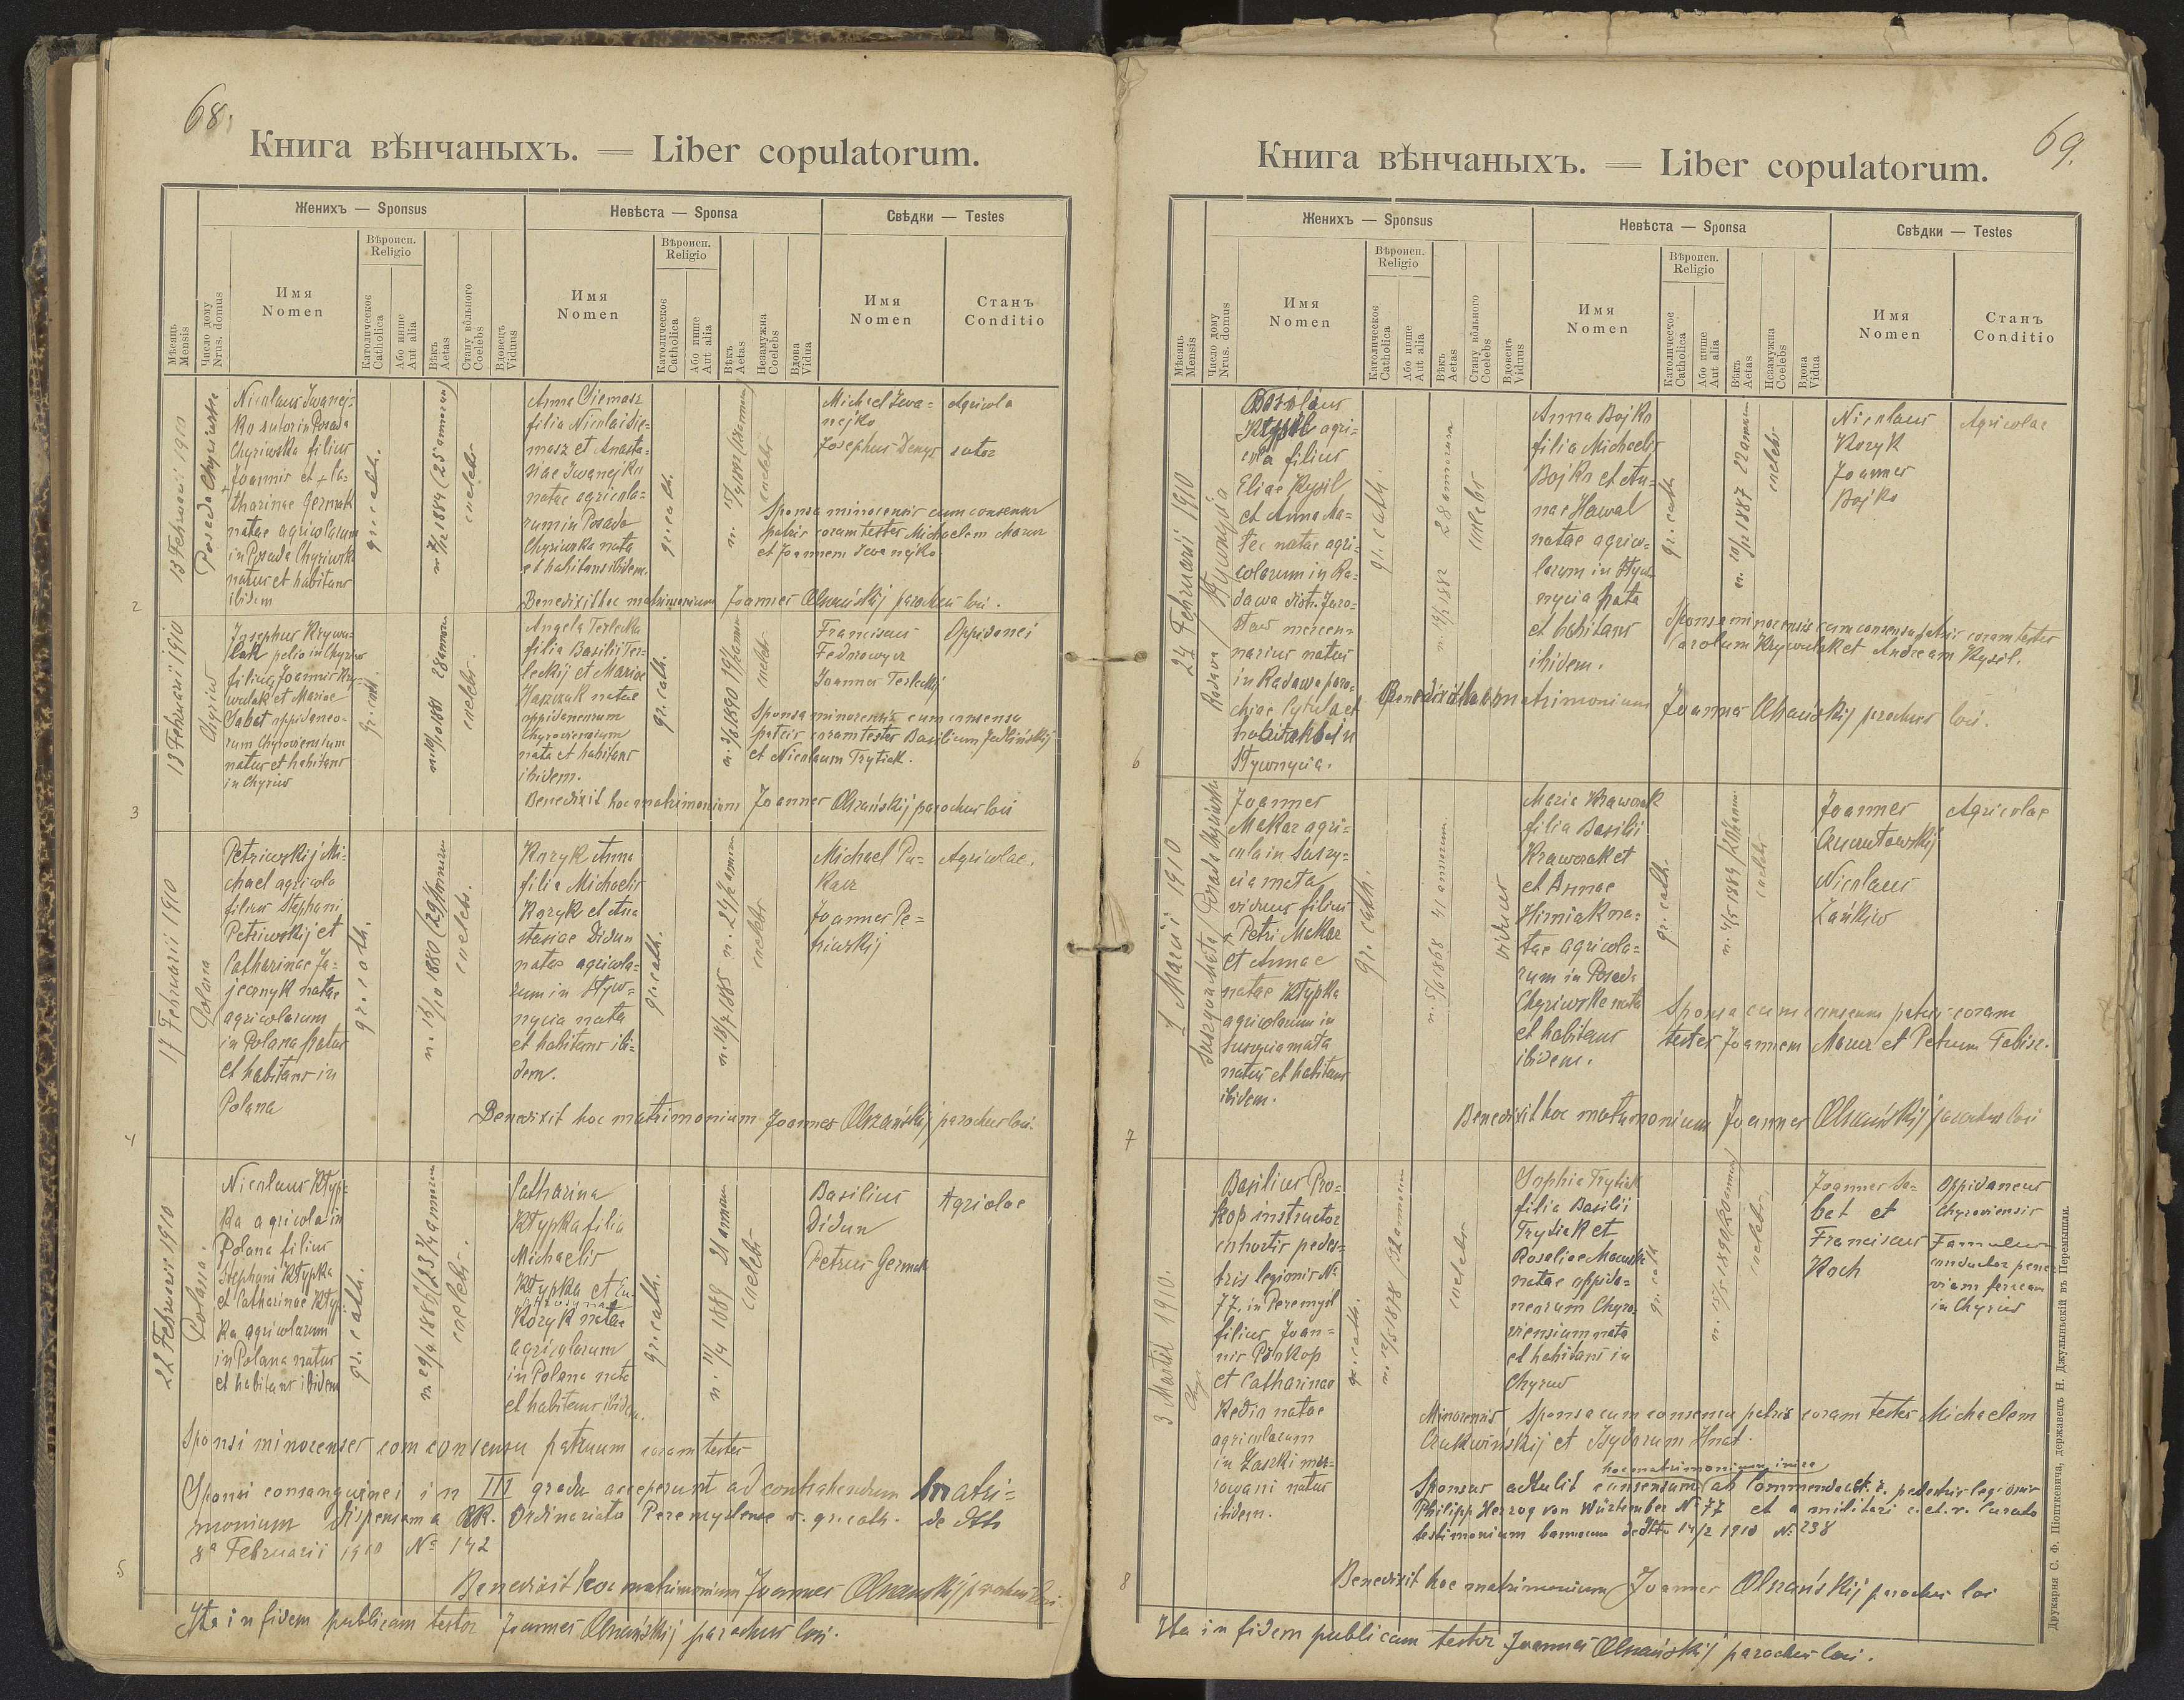 68.
Книга вѣнчаныхъ. — Liber copulatorum.
Женихъ — Sponsus
Невѣста — Sponsa
Свѣдки — Testes
Мѣсяць
Mensis
Число дому
Nrus. domus
Имя
Nomen
Вѣроисп.
Religio
Католическое
Catholica
Або инше
Aut alia
Вѣкъ
Aetas
Стану вôльного
Coelebs
Вдовець
Viduus
Имя
Nomen
Вѣроисп.
Religio
Католическое
Catholica
Або инше
Aut alia
Вѣкъ
Aetas
Незамужна
Coelebs
Вдова
Vidua
Имя
Nomen
Станъ
Conditio
2
13 Februarii 1910
Posada Chyriwska
Nicolaus Iwanej-
ko sutor in Posada
Chyriwska filius
Joannis et + Ca-
tharinae Germak
natae agricolarum
in Posada Chyriwska
natus et habitans
ibidem
gr. cath.
1884 (25 annorum)
coelebs
Anna Siemasz
filia Nicolai Sie-
masz et Anasta-
siae Iwanejko
natae agricola-
rum in Posada
Chyriwska nata
et habitans ibidem.
gr. cath.
coelebs
Michael Iwa-
nejko
Josephus Denys
Agricola
sutor
Sponsa minorensis cum consensu
patris coram testes Michaelem Mazur
et Joannem Iwanejko
Benedixit hoc matrimonium Joannes Olszańskij parochus loci.
3
13 Februarii 1910
Chyriw
Josephus Krywu-
lak pelio in Chyriw
filius Joannis Kry-
wulak et Mariae
Sabat oppidaneo-
rum Chyroviensium
natus et habitans
in Chyriw
gr. cath.
n. 10/10 1881 28 annor.
coelebs.
Angela Terlecka
filia Basilii Ter-
leckij et Mariae
natae
oppidaneorum
Chyroviensium
nata et habitans
ibidem.
gr. cath.
coelebs
Franciscus
Fedorowycz
Joannes Terleckij
Oppidanei
Sponsa minorensis cum consensu
patris coram testes Basilium
et Nicolaum Trytiak.
Benedixit hoc matrimonium Joannes Olszańskij parochus loci
4
17 Februarii 1910
Polana
Petriwskij Mi-
chael agricola
filius Stephani
Petriwskij et
Catharinae Ja-
jecznyk natae
agricolarum
in Polana natus
et habitans in
Polana
gr. cath.
n. 16/10 1880 (29 annorum
coelebs.
Kozyk Anna
filia Michaelis
Kozyk et Ana-
stasiae Didun
natae agricola-
rum in Styw-
nycia nata
et habitans ibi-
dem.
gr. cath.
n. 18/7 1885 n. 24 1/2 annor.
coelebs
Michael Pu-
karz
Joannes Pe-
triwskij
Agricolae.
Benedixit hoc matrimonium Joannes Olszańskij parochus loci.
5
22 Februarii 1910
Polana.
Nicolaus Kłyp-
ka agricola in
Polana filius
Stephani Kłypka
et Catharinae Kłyp-
ka agricolarum
in Polana natus
et habitans ibidem
gr. cath.
coelebs.
Catharina
Kłypka filia
Michaelis
Kłypka et Eu-
phrosynae
Kozyk natae
agricolarum
in Polana nata
et habitans ibidem.
gr. cath.
n. 11/4 1889 21 annor.
coelebs
Basilius
Didun
Petrus Germak
Agricolae
Sponsi minorenses cum consensu patruum coram testes
Sponsi consanguinei in III gradu acceperunt ad contrahendum matri-
monium dispensam a RR. Ordinariatu Peremyslense r. gr. cath. de dtto
8a Februarii 1910 No 142
Benedixit hoc matrimonium Joannes Olszańskij parochus loci
Ita in fidem publicam testor Joannes Olszańskij parochus loci.
69.
Книга вѣнчаныхъ. — Liber copulatorum.
Женихъ — Sponsus
Невѣста — Sponsa
Свѣдки — Testes
Мѣсяць
Mensis
Число дому
Nrus. domus
Имя
Nomen
Вѣроисп.
Religio
Католическое
Catholica
Або инше
Aut alia
Вѣкъ
Aetas
Стану вôльного
Coelebs
Вдовець
Viduus
Имя
Nomen
Вѣроисп.
Religio
Католическое
Catholica
Або инше
Aut alia
Вѣкъ
Aetas
Незамужна
Coelebs
Вдова
Vidua
Имя
Nomen
Станъ
Conditio
6
24 Februarii 1910
Radawa / Stywnycia
Kysil agri-
cola filius
Eliae Kysil
et Anna Ma-
tec natae agri-
colarum in Ra-
dawa distr. Jaro-
slaw mercen-
narius natus
in Radawa paro-
chiae Cytula et
habitans in
Stywnycia.
gr. cath.
1882 28 annorum
coelebs
Anna Bojko
filia Michaelis
Bojko et An-
nae Hawal
natae agrico-
larum in Styw-
nycia nata
et habitans
ibidem.
gr. cath
1887 22 annor.
coelebs
Nicolaus
Kozyk
Joannes
Bojko
Agricolae
Sponsa minorensis cum consensu patris coram testes
Carolum Krywulak et Andream Kysil.
Benedixit hoc matrimonium Joannes Olszańskij parochus loci.
7
1 Martii 1910
Suszyciamała / Posada Chyriwska
Joannes
Makar agri-
cola in Suszy-
cia mała
viduus filius
+ Petri Makar
et Annae
natae Kłypka
agricolarum in
Suszycia mała
natus et habitans
ibidem.
gr. cath.
1868 41 annorum.
viduus
Maria Krawczak
filia Basilii
Krawczak et
et Annae
Hirniak na-
tae agricola-
rum in Posada
Chyriwska nata
et habitans
ibidem.
gr. cath.
n. 4/5 1889 /20 annor.
coelebs
Joannes
Kwiatowskij
Nicolaus
Zańkiw
Agricolae
Sponsa cum consensu patris coram
testes Joannem Mazur et Petrum Tabisz.
Benedixit hoc matrimonium Joannes Olszańskij parochus loci
8
3 Martii 1910.
Chyr.
Basilius Pro-
kop instructor
cohortis pedes-
tris legionis No
77. in Peremysl
filius Joan-
nis Prokop
et Catharinae
Kedio natae
agricolarum
in Laszki mu-
rowani natus
ibidem.
gr. cath.
coelebs
Sophia Trytiak
filia Basilii
Trytiak et
Rosaliae
natae oppida-
neorum Chyro-
viensium nata
et habitans in
Chyriw
gr. cath
coelebs
Joannes Sa-
bat et
Franciscus
Koch
Oppidaneus
Chyroviensis
Famulus
conductor penes
viam ferream
in Chyriw
Minorensis sponsa cum consensu patris coram testes Michaelem
Czukwińskij et Isydorum Hnat.
hoc matrimonium inire
Sponsus adtulit consensum ab Commenda c. et. r. pedestris legionis
Philipp Herzog von Würtemberg No 77 et a militari c. et. r. Curato
testimonium bannorum de dtto 14/2 1910 No 238
Benedixit hoc matrimonium Joannes Olszańskij parochus loci
Ita in fidem publicam testor Joannes Olszańskij parochus loci.
Друкарня С. Ф. Піонткевича, держаець Н. Джулыньскій въ Перемышли.